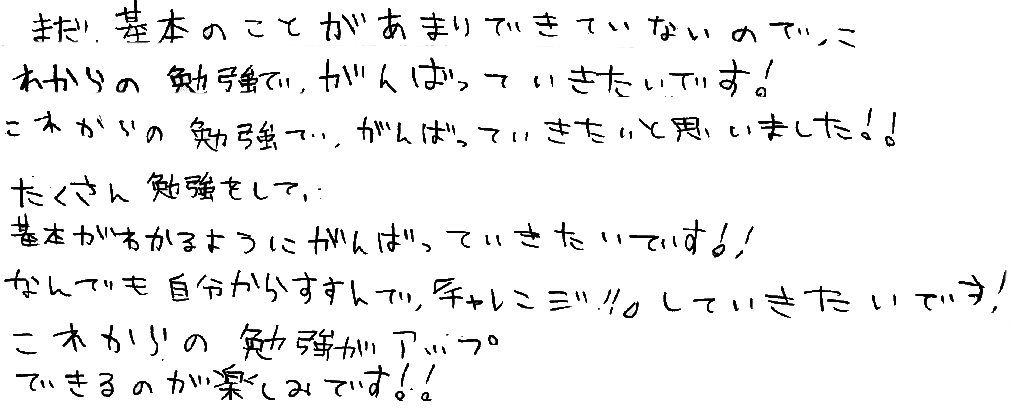 まだ、基本のことがあまりできていないので、こ
れからの勉強で、がんばっていきたいです!
これからの勉強で、がんばっていきたいと思いました!!
たくさん勉強をして、
基本がわかるようにがんばっていきたいです!!
なんでも自分からすすんで、チャレンジ!!。していきたいです!
これからの勉強がアップ
できるのが楽しみです!!